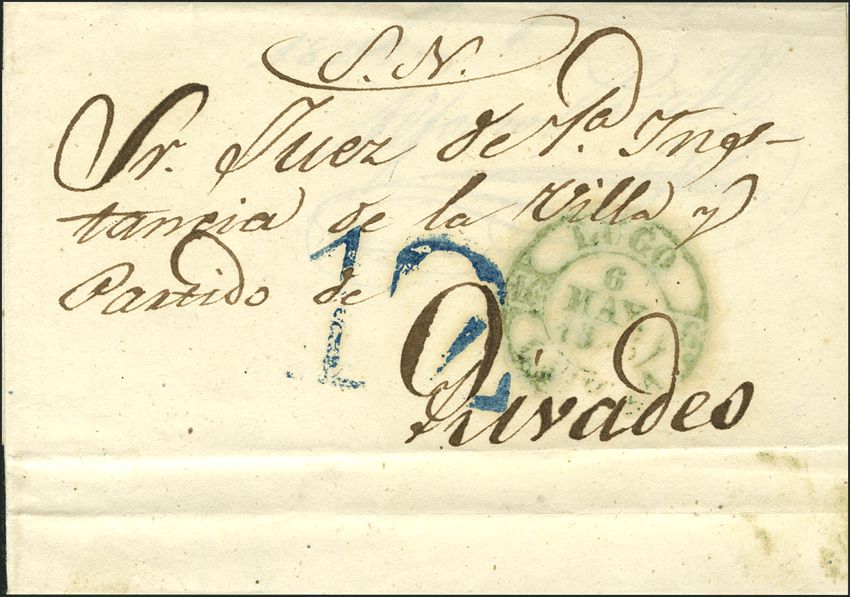 S. N.
Sr. Juez de 1ª Ins-
tancia de la Villa y
Partido de
Rivadeo
12
LUGO
6
MAY